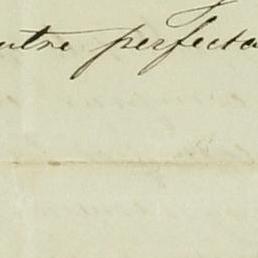 utre perfecta